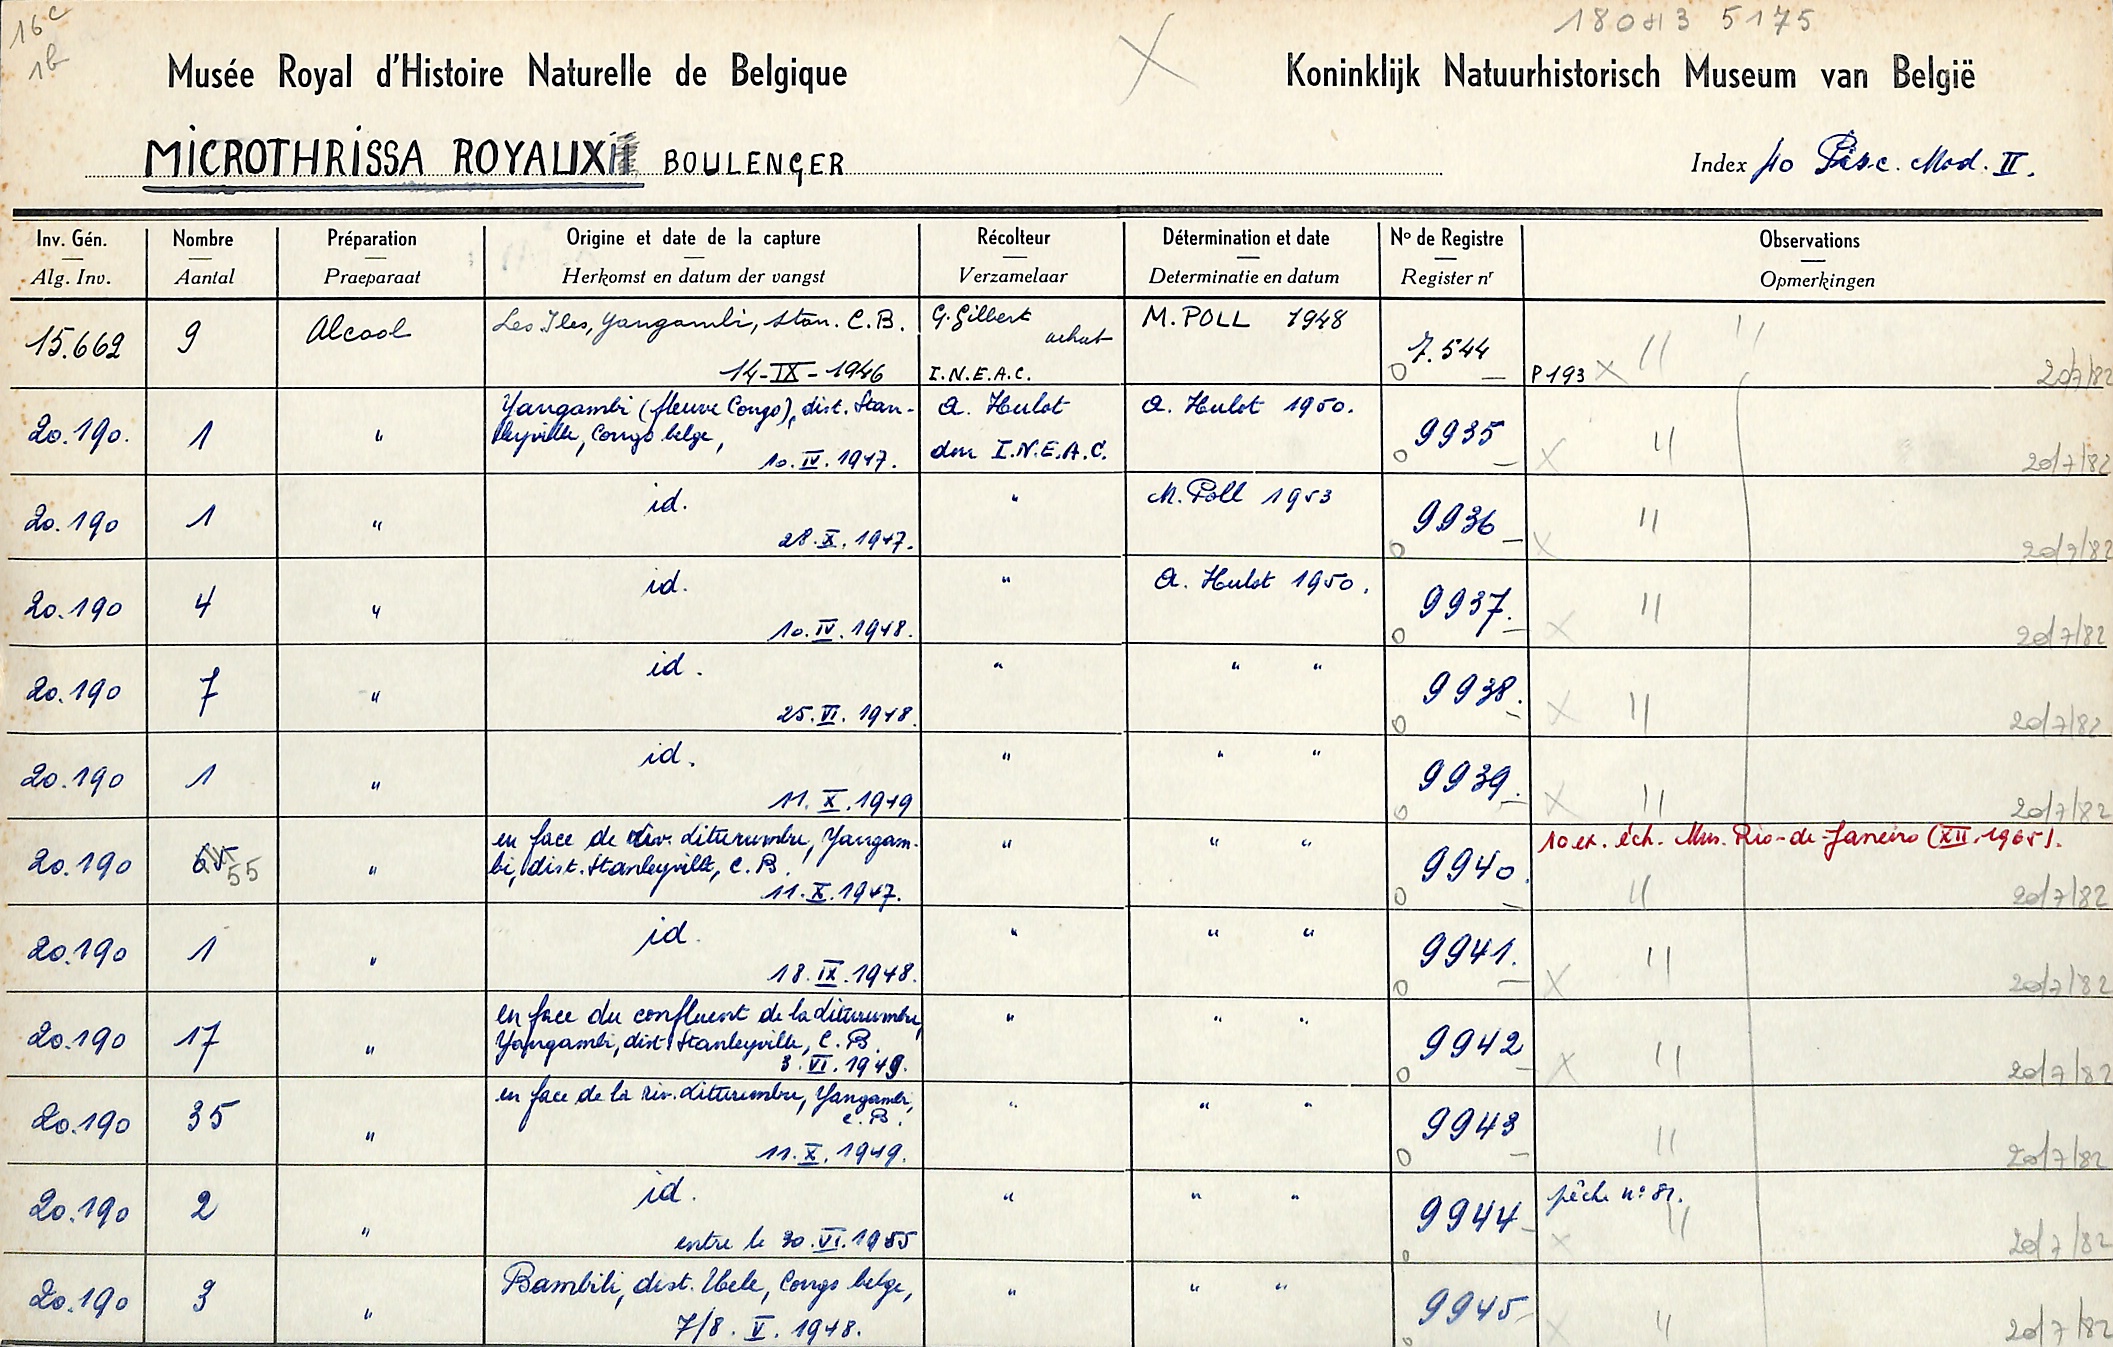 16c
1b
180 813 5175
Musée Royal d'Histoire Naturelle de Belgique X Koninklijk Natuurhistorisch Museum van België
MICROTHRISSA ROYAUXI BOULENGER Index 40 Pisc. Mod. II.
Inv. Gén. Nombre Préparation Origine et date de la capture Récolteur Détermination et date No de Registre Observations
Alg. Inv. Aantal Praeparaat Herkomst en datum der vangst Verzamelaar Determinatie en datum Register nr Opmerkingen
15.662 9 Alcool Les Iles, Yangambi, Stan. C.B. G. Gilbert achat M. POLL 1948 7.544 "
14-IX-1946 I.N.E.A.C. O P193 X 20/7/82
20.190. 1 " Yangambi (fleuve Congo), dist. Stan- A. Hulot A. Hulot 1950. 9935 "
leyville, Congo belge, don I.N.E.A.C.
10.IV.1947. O X 20/7/82
20.190 1 " id. " M. Poll 1953 9936 "
28.X.1947. O X 20/7/82
20.190 4 " id. " A. Hulot 1950. 9937. "
10.IV.1948. O X 20/7/82
20.190 7 " id. " " " 9938. "
25.VI.1948. O X 20/7/82
20.190 1 " id. " " " 9939. "
11.X.1949 O X 20/7/82
20.190 65 55 " en face de riv. Liturumbu, Yangam- " " " 9940. 10 ex. éch. Mus. Rio-de-Janeiro (XII.1965).
bi, dist. Stanleyville, C.B.
11.X.1947. O " 20/7/82
20.190 1 " id. " " " 9941. "
18.IX.1948. O X 20/7/82
20.190 17 " en face du confluent de la Liturumbu, " " " 9942 "
Yangambi, dist. Stanleyville, C.B.
3.VI.1949. O X 20/7/82
20.190 35 " en face de la riv. Liturumbu, Yangambi, " " " 9943 "
C.B.
11.X.1949. O 20/7/82
20.190 2 " id. " " " 9944 pêche n° 81. "
entre le 30.VI.1955 O X 20/7/82
20.190 3 " Bambili, dist. Uele, Congo belge, " " " 9945 "
7/8.V.1948. O X 20/7/82